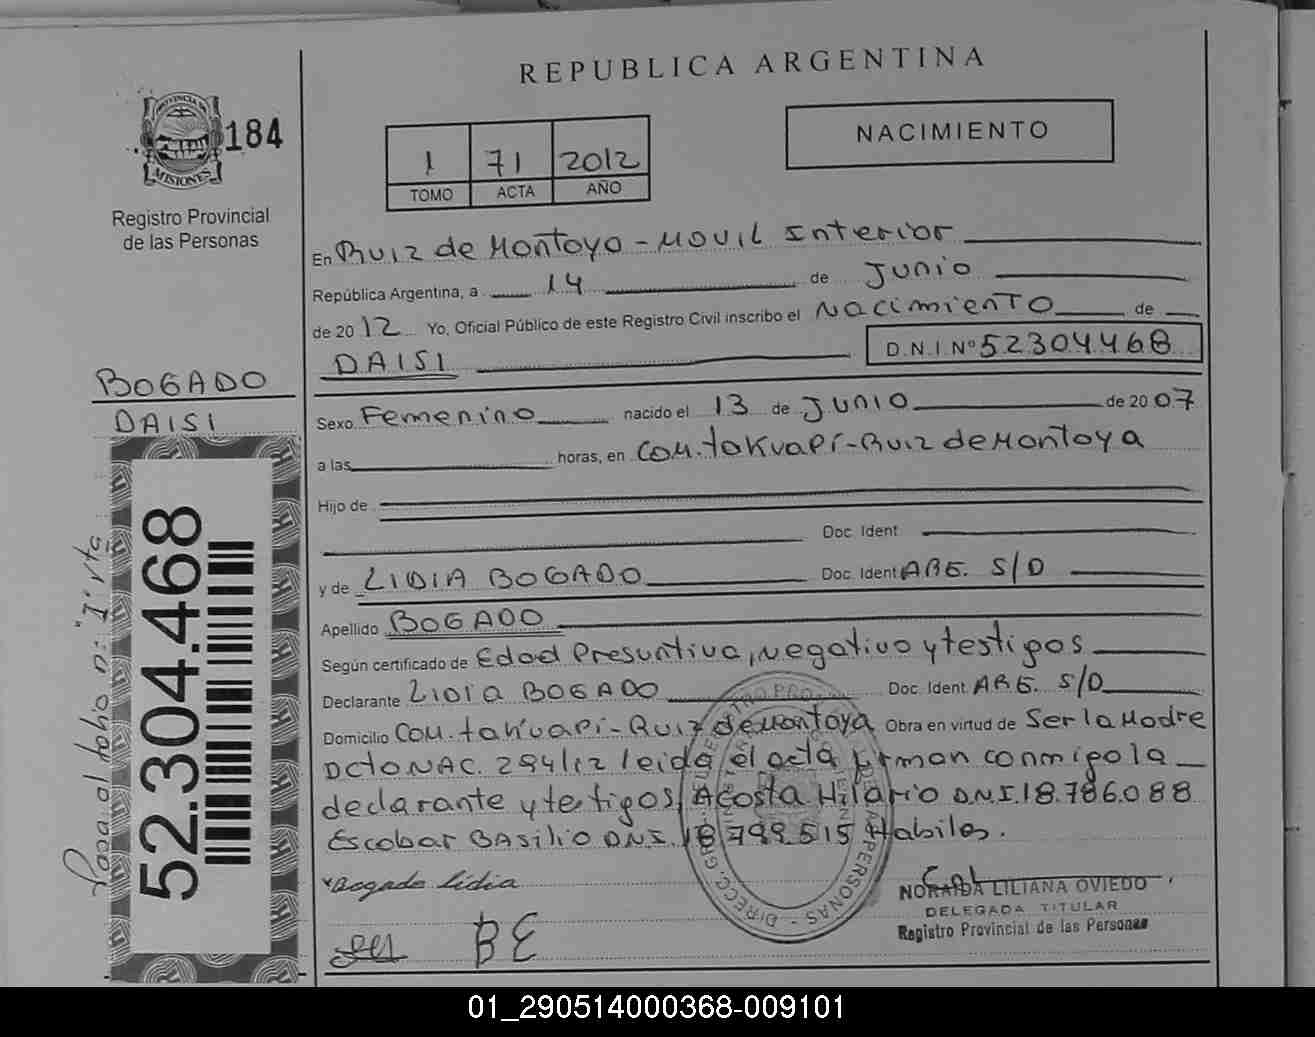 REPUBLICA ARGENTINA
PROVINCIA DE
MISIONES
184
Registro Provincial
de las Personas
1 71 2012
TOMO ACTA AÑO
NACIMIENTO
En Ruiz de Montoya - MOVIL Interior
República Argentina, a 14 de Junio
de 2012 Yo, Oficial Público de este Registro Civil inscribo el Nacimiento de
DAISI D.N.I.Nº 52304468
BOGADO
DAISI
Sexo Femenino nacido el 13 de Junio de 2007
a las horas, en Com. takuapi - Ruiz de Montoya
Hijo de
Doc. Ident
y de LIDIA BOGADO Doc. Ident ARG. S/D
Apellido BOGADO
Según certificado de Edad Presuntiva, negativo y testigos
Declarante Lidia BOGADO Doc. Ident ARG. S/D
Domicilio Com. takuapi - Ruiz de Montoya Obra en virtud de Ser la Madre
DCTO NAC. 294/12 leida el acta firman conmigo la
declarante y testigos, Acosta Hilario D.N.I. 18.786.088
Escobar BASilio D.N.I. 18.799.515 Habiles.
Bogado Lidia
BE
NORAIDA LILIANA OVIEDO
DELEGADA TITULAR
Registro Provincial de las Personas
52.304.468
01_290514000368-009101